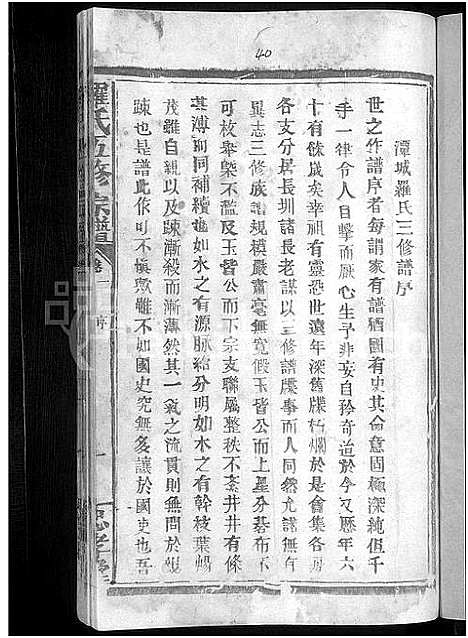 40
潭城羅氏三修譜序
世之作譜序者每謂家有譜猶國有史其命意固極深純但千
手一律令人目擊而厭心生予非妄自矜奇迨於今又歷年六
十有餘歲矣幸祖有靈恐世遠年深舊牒朽爛於是會集各房
各支分居長圳諸長老謀以三修譜牒事而人同然允諾無有
異志三修族譜規模嚴肅毫無寬假玉皆公一星分碁布不
可枚舉槩不濫及玉皆公而下宗支聯屬整秩不紊井井有條
甚溥前同補續進如水之有源脉給分明如木之有幹枝葉暢
茂雖自親以及踈漸殺而漸薄然其一氣之流貫則無問於親
踈也是譜此作可不愼歟雖不如國史究無多讓於國史也吾
羅氏五修宗譜
卷一
序
一